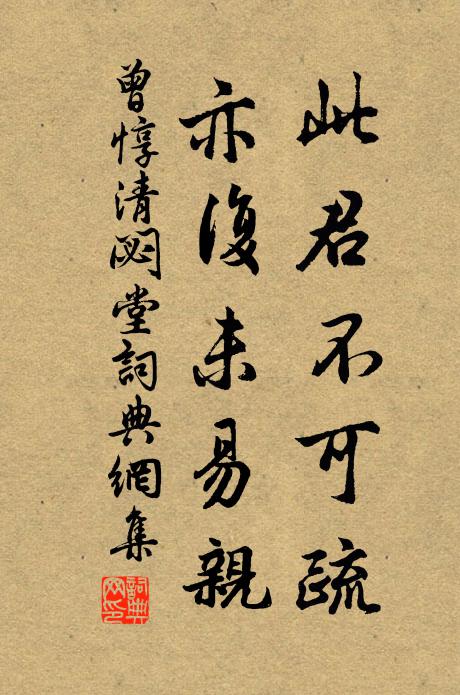 此君不可疏
亦復未易親
曾惇清閟堂詞典網集
詞典網印